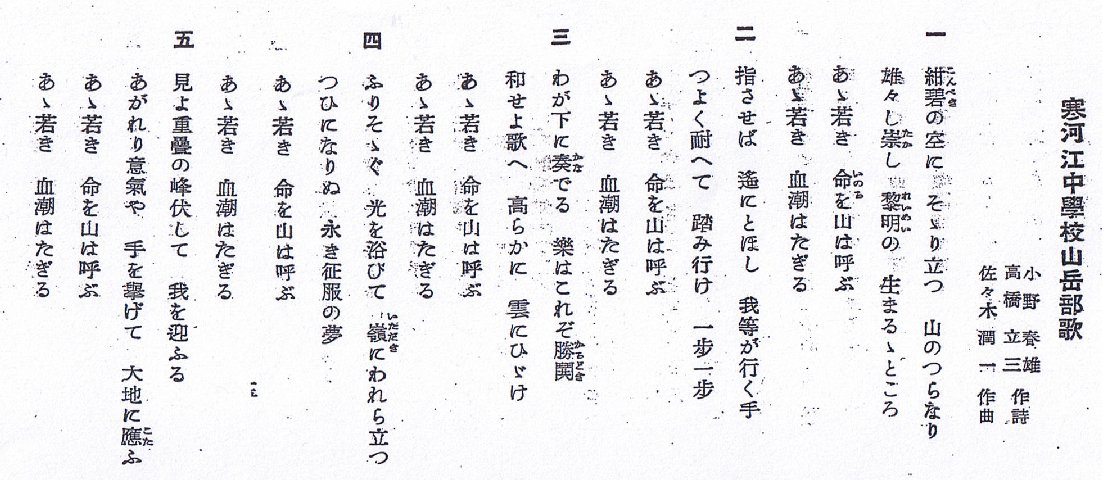 寒河江中學校山岳部歌
小野 春雄
高橋 立三 作詩
佐々木 潤一 作曲
一 紺碧の空に そゝり立つ 山のつらなり
雄々し崇し 黎明の 生まるゝところ
あゝ若き 命を山は呼ぶ
あゝ若き 血潮はたぎる
二 指させば 遙にとほし 我等が行く手
つよく耐へて 踏み行け 一步一步
あゝ若き 命を山は呼ぶ
あゝ若き 血潮はたぎる
三 わが下に奏でる 樂はこれぞ勝鬨
和せよ歌へ 高らかに 雲にひゞけ
あゝ若き 命を山は呼ぶ
あゝ若き 血潮はたぎる
四 ふりそゝぐ 光を浴びて 嶺にわれら立つ
つひになりぬ 永き征服の夢
あゝ若き 命を山は呼ぶ
あゝ若き 血潮はたぎる
五 見よ重疊の峰伏して 我を迎ふる
あがれり意氣や 手を擧げて 大地に應ふ
あゝ若き 命を山は呼ぶ
あゝ若き 血潮はたぎる